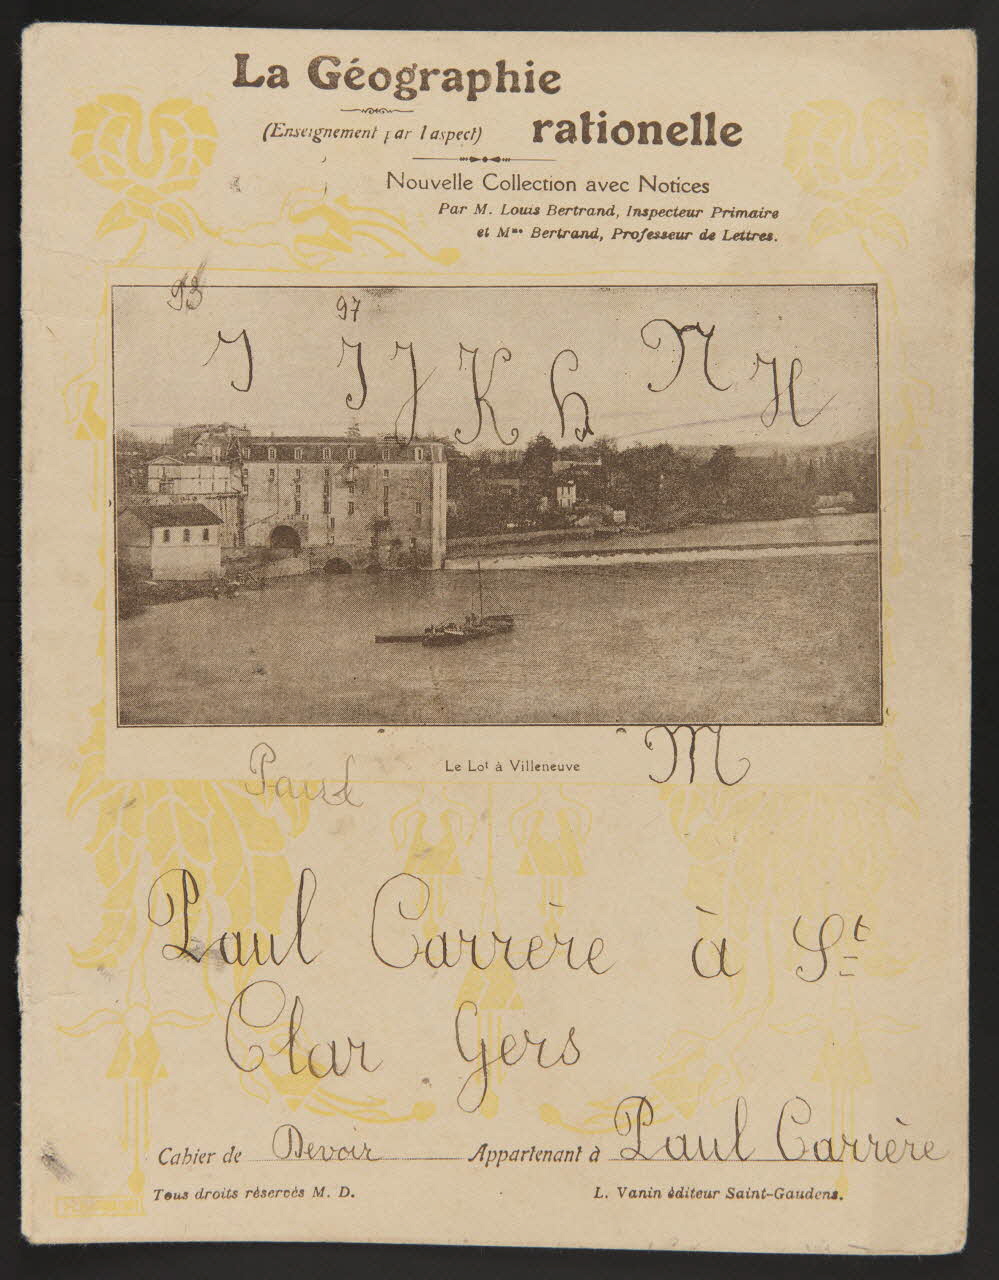 La Géographie
rationelle
(Enseignement par l'aspect)
Nouvelle Collection avec Notices
Par M. Louis Bertrand, Inspecteur Primaire
et Mme Bertrand, Professeur de Lettres.
93
97
I I J K h N H
M
Le Lot à Villeneuve
Paul
Paul Carrère à St
Clar Gers
Cahier de Devoir Appartenant à Paul Carrère
Tous droits réservés M. D. L. Vanin éditeur Saint-Gaudens.